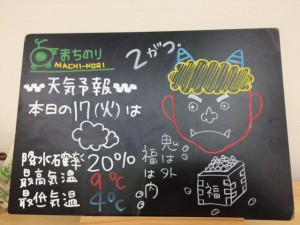 まちのり
MACHI-NORI
2がつ
天気予報
本日の17(火)は
降水確率20%
最高気温 9℃
最低気温 4℃
鬼は外
福は内
福